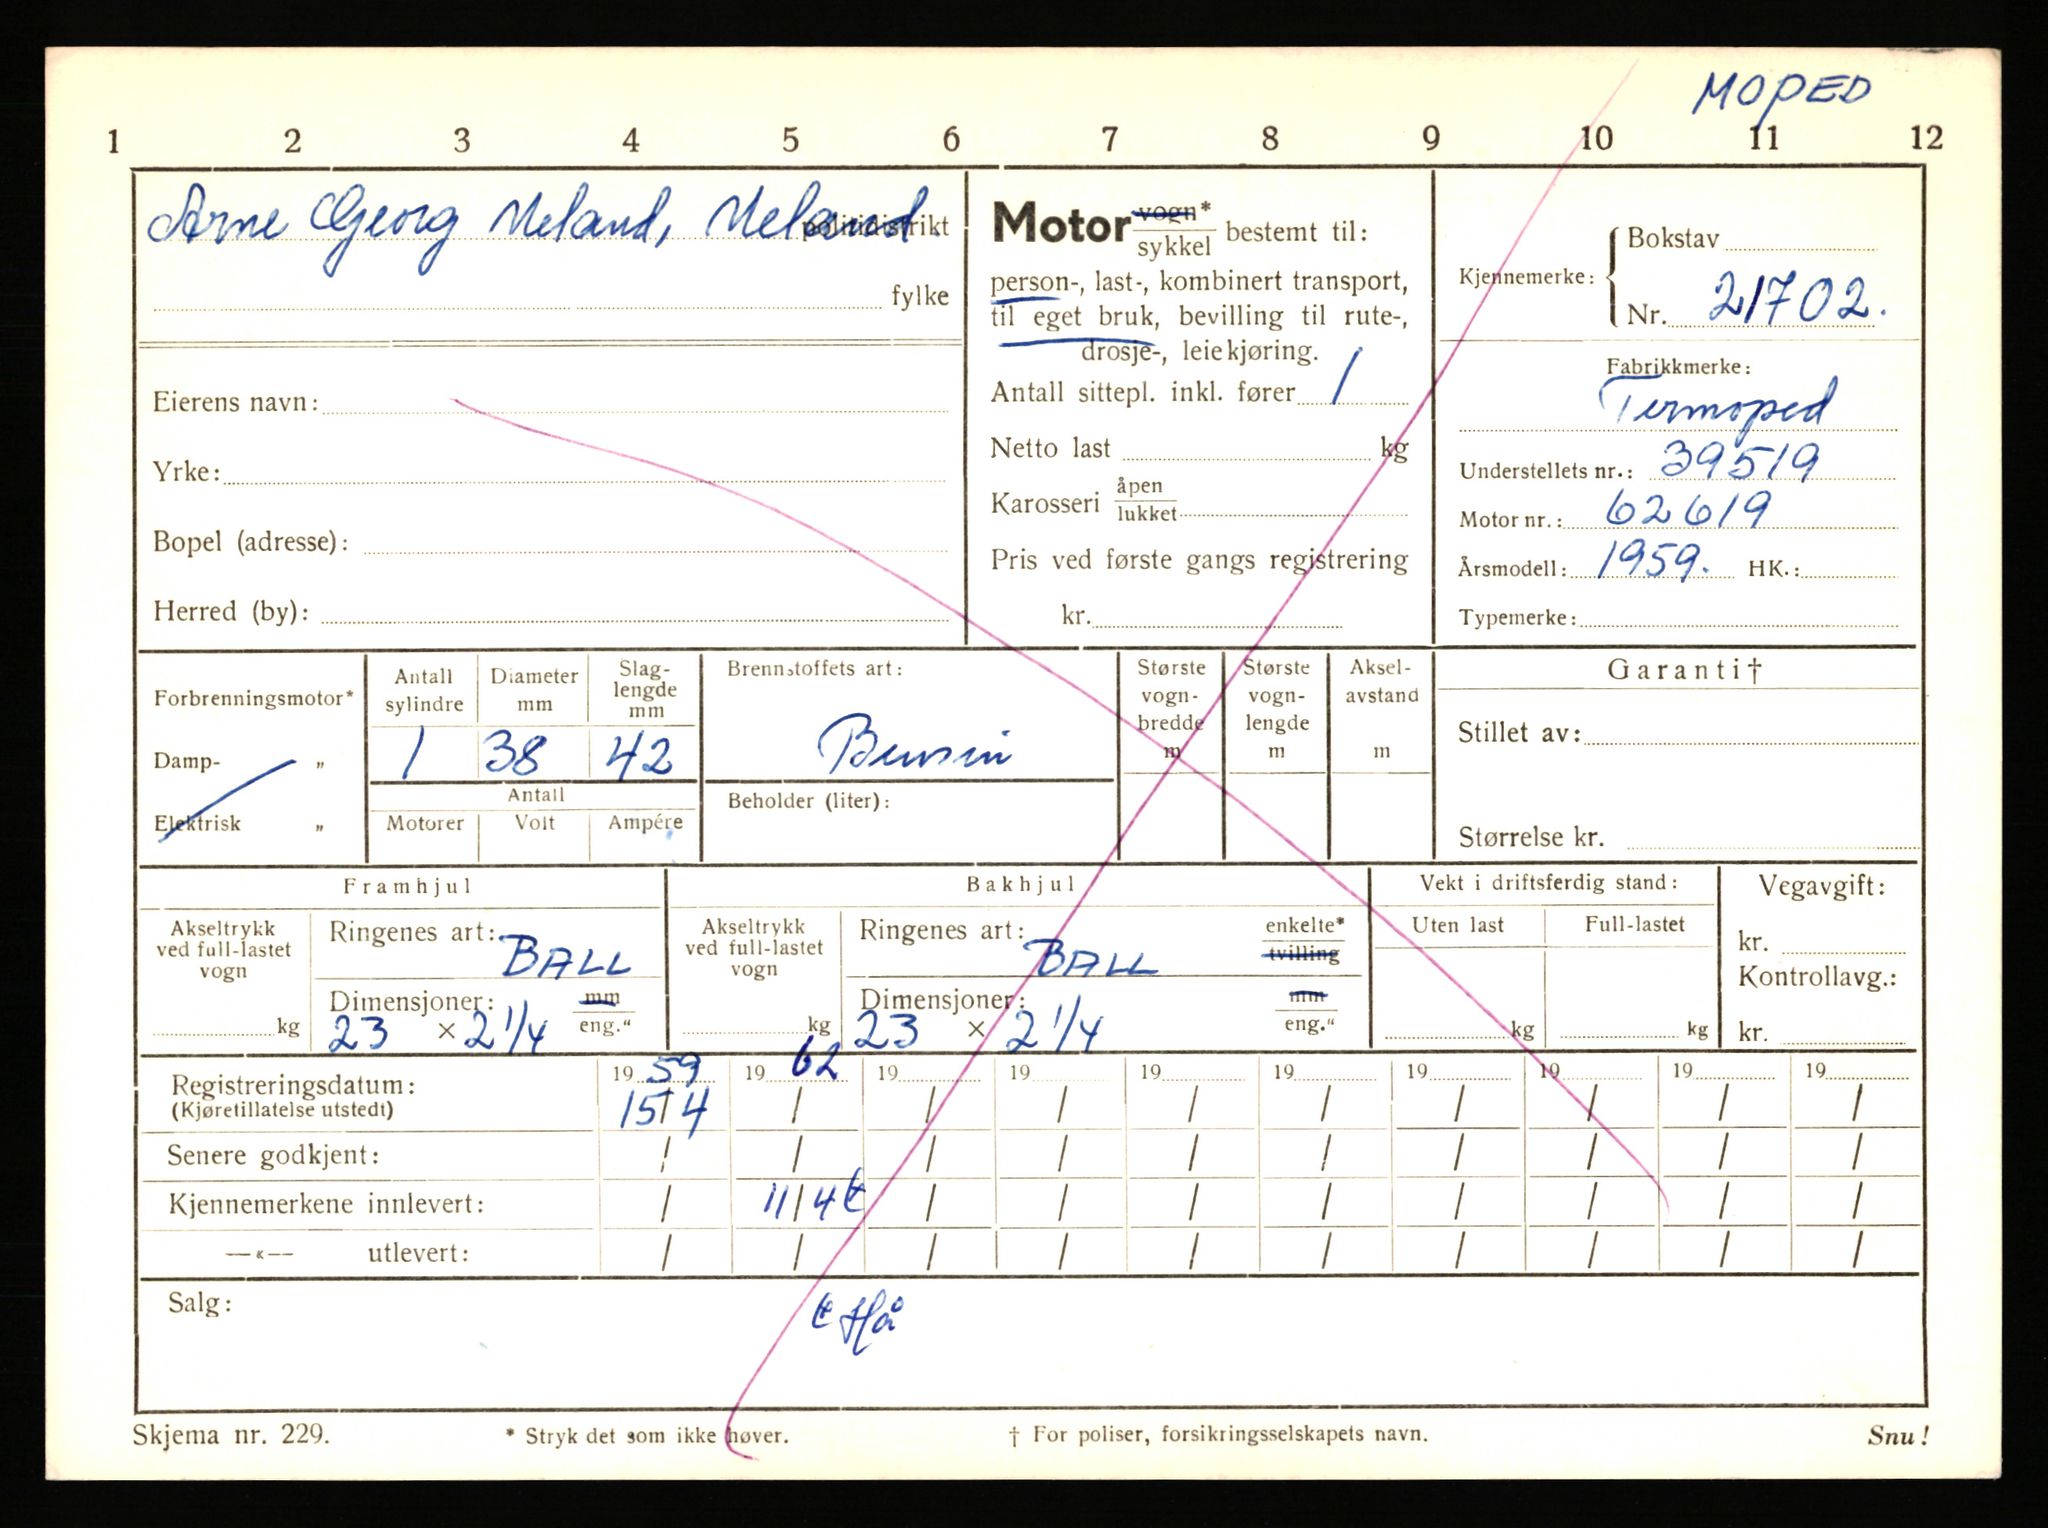 MOPED
1 2 3 4 5 6 7 8 9 10 11 12
Arne Georg Meland, Meland. politidistrikt
fylke
Eierens navn:
Yrke:
Bopel (adresse):
Herred (by):
Motor vogn* sykkel bestemt til:
person-, last-, kombinert transport,
til eget bruk, bevilling til rute-,
drosje-, leiekjøring.
Antall sittepl. inkl. fører 1
Netto last kg
Karosseri åpen lukket
Pris ved første gangs registrering
kr.
Kjennemerke: Bokstav
Nr. 21702.
Fabrikkmerke:
Termoped
Understellets nr.: 39519
Motor nr.: 62619
Årsmodell: 1959. HK.:
Typemerke:
Forbrenningsmotor*
Damp- „
Elektrisk „
Antall sylindre Diameter mm Slaglengde mm
1 38 42
Antall
Motorer Volt Ampére
Brennstoffets art:
Bensin
Beholder (liter):
Største vogn-bredde m
Største vogn-lengde m
Aksel-avstand m
Garanti†
Stillet av:
Størrelse kr.
Framhjul
Akseltrykk ved full-lastet vogn kg
Ringenes art: BALL
Dimensjoner: mm eng."
23 × 2 1/4
Bakhjul
Akseltrykk ved full-lastet vogn kg
Ringenes art: BALL enkelte* tvilling
Dimensjoner: mm eng."
23 × 2 1/4
Vekt i driftsferdig stand:
Uten last Full-lastet
kg kg
Vegavgift:
kr.
Kontrollavg.:
kr.
Registreringsdatum: 19 59 19 62 19 19 19 19 19 19 19 19
(Kjøretillatelse utstedt) 15/4 / / / / / / / / /
Senere godkjent: / / / / / / / / / /
Kjennemerkene innlevert: / 11/4 t / / / / / / / /
—«— utlevert: / / / / / / / / / /
Salg:
t Hå
Skjema nr. 229.
* Stryk det som ikke høver.
† For poliser, forsikringsselskapets navn.
Snu!